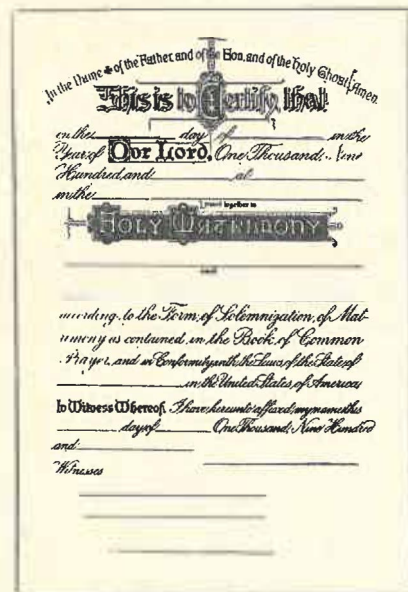 In the Name of the Father, and of the Son, and of the Holy Ghost. Amen.
This is to Certify, that
on the day of in the
Year of Our Lord, One Thousand Nine
Hundred, and at
in the
together in
HOLY MATRIMONY
and
according, to the Form, of Solemnization, of Mat-
rimony as contained, in the Book, of Common
Prayer, and in Conformity with the Laws, of the State, of
in the United, States, of America
In Witness Whereof, I have, hereunto affixed, my name this
day, of One Thousand, Nine Hundred
and
Witnesses